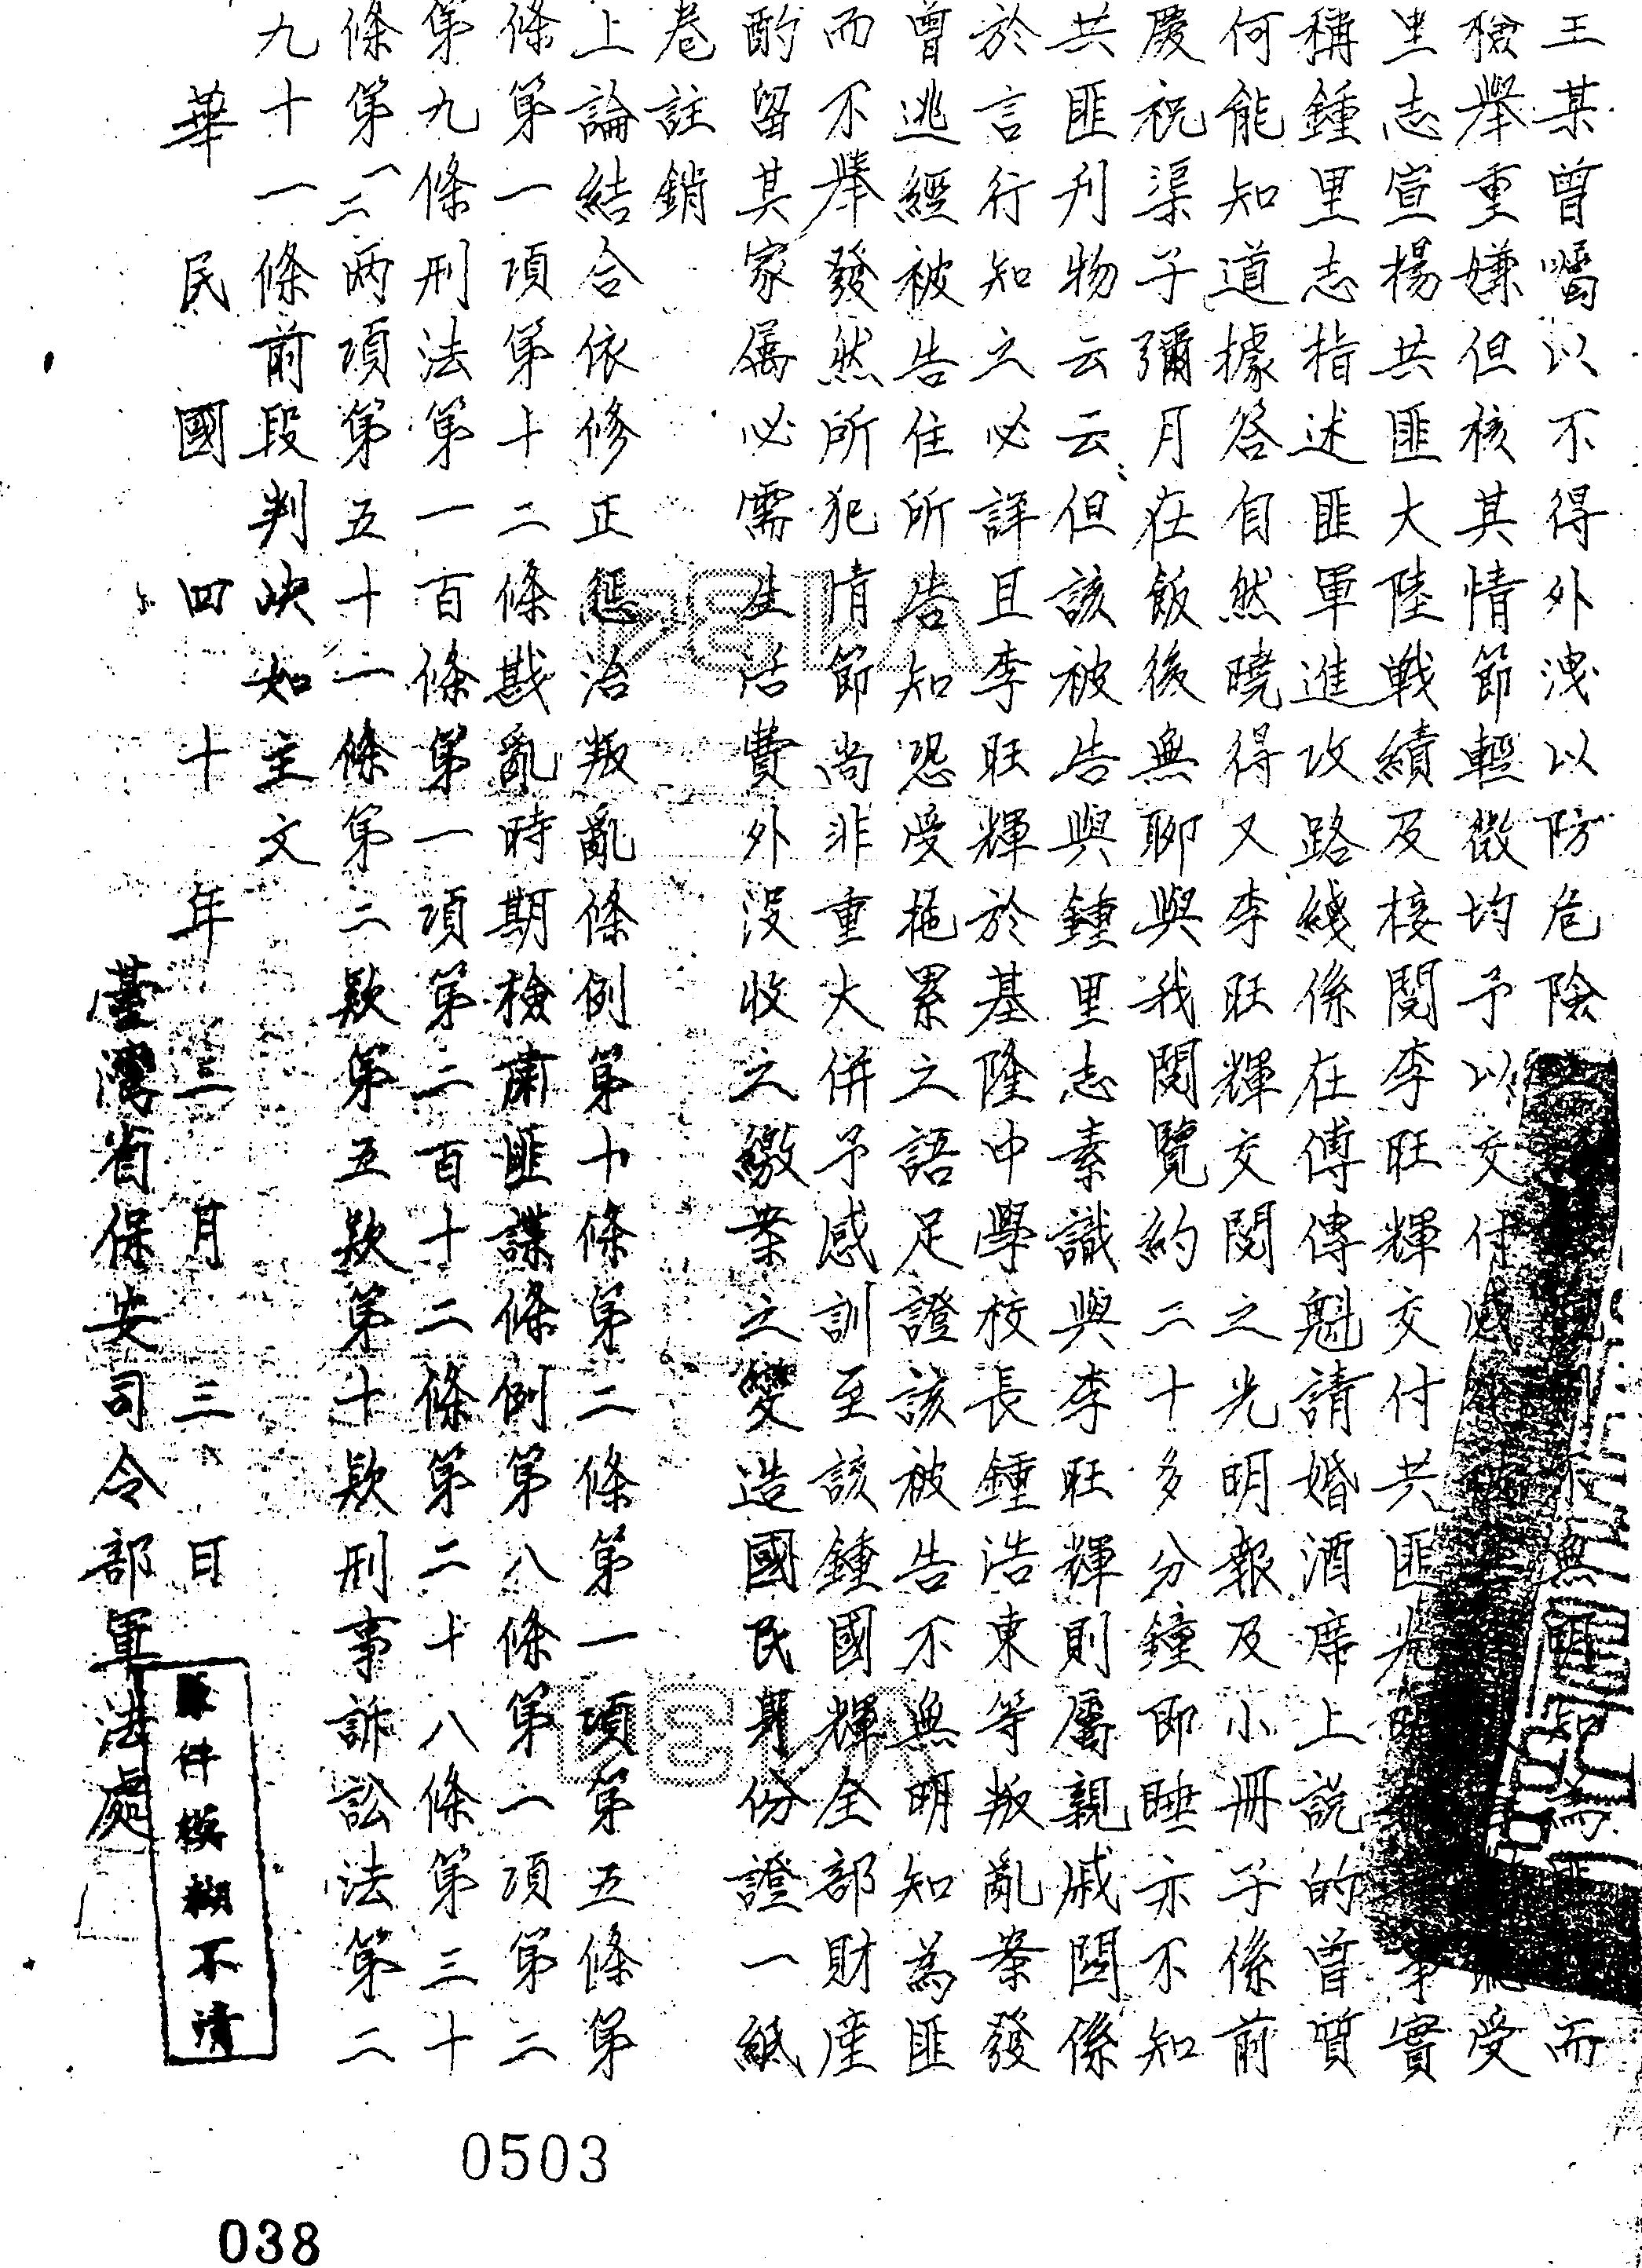 王某曾囑以不得外洩以防危險 無 而
檢舉重嫌但核其情節輕微均予以交付感 受
里志宣揚共匪大陸戰績及接閱李旺輝交付共匪光 實
稱鍾里志指述匪軍進攻路綫係在傅傳魁請婚酒席上說的曾質
何能知道據答自然曉得又李旺輝交閱之光明報及小冊子係前
慶祝渠子彌月在飯後無聊與我閱覽約二十多分鐘即睡亦不知
共匪刊物云云但該被告與鍾里志素識與李旺輝則屬親戚關係
於言行知之必詳且李旺輝於基隆中學校長鍾浩東等叛亂案發
曾逃經被告住所告知恐受拖累之語足證該被告不無明知為匪
而不舉發然所犯情節尚非重大併予感訓至該鍾國輝全部財產
酌留其家屬必需生活費外沒收之繳案之變造國民身份證一紙
卷註銷
上論結合依修正懲治叛亂條例第十條第二條第一項第五條第
條第一項第十二條戡亂時期檢肅匪諜條例第八條第一項第二
第九條刑法第一百條第一項第二百十二條第二十八條第三十
條第一二兩項第五十一條第二款第五款第十款刑事訴訟法第二
九十一條前段判決如主文
華民國四十年三月三日
臺灣省保安司令部軍法處
原件模糊不清
0503
038